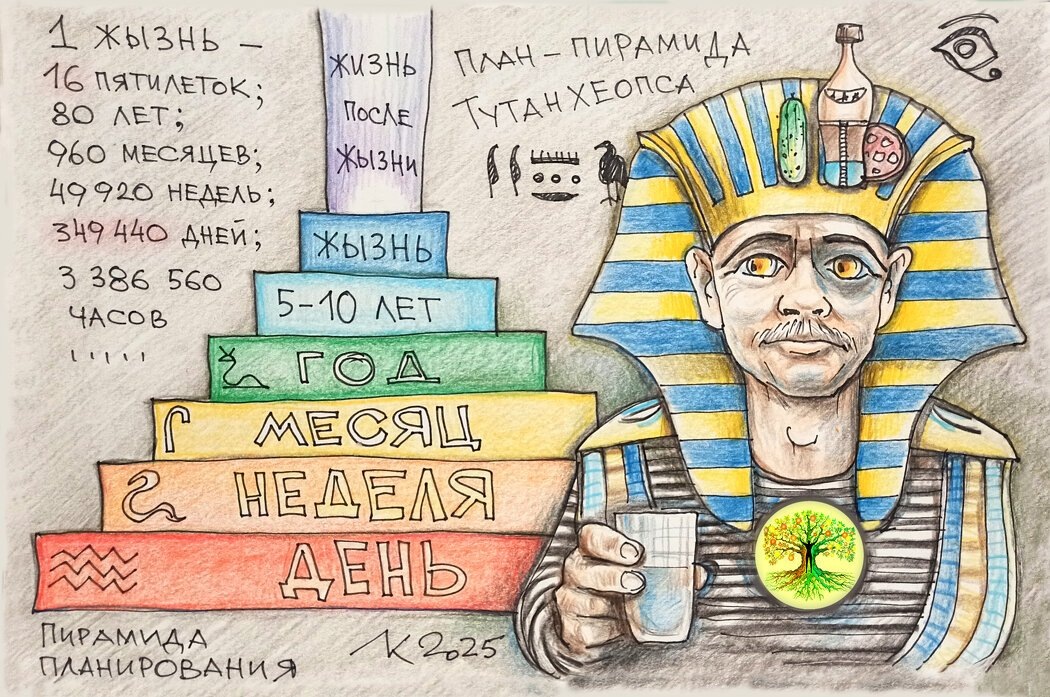 1 ЖЫЗНЬ –
16 ПЯТИЛЕТОК;
80 ЛЕТ;
960 МЕСЯЦЕВ;
49 920 НЕДЕЛЬ;
349 440 ДНЕЙ;
3 386 560
ЧАСОВ
.....
ПЛАН – ПИРАМИДА
ТУТАНХЕОПСА
ЖИЗНЬ
ПОСЛЕ
ЖЫЗНИ
ЖЫЗНЬ
5–10 ЛЕТ
ГОД
МЕСЯЦ
НЕДЕЛЯ
ДЕНЬ
ПИРАМИДА
ПЛАНИРОВАНИЯ
ЛК 2025